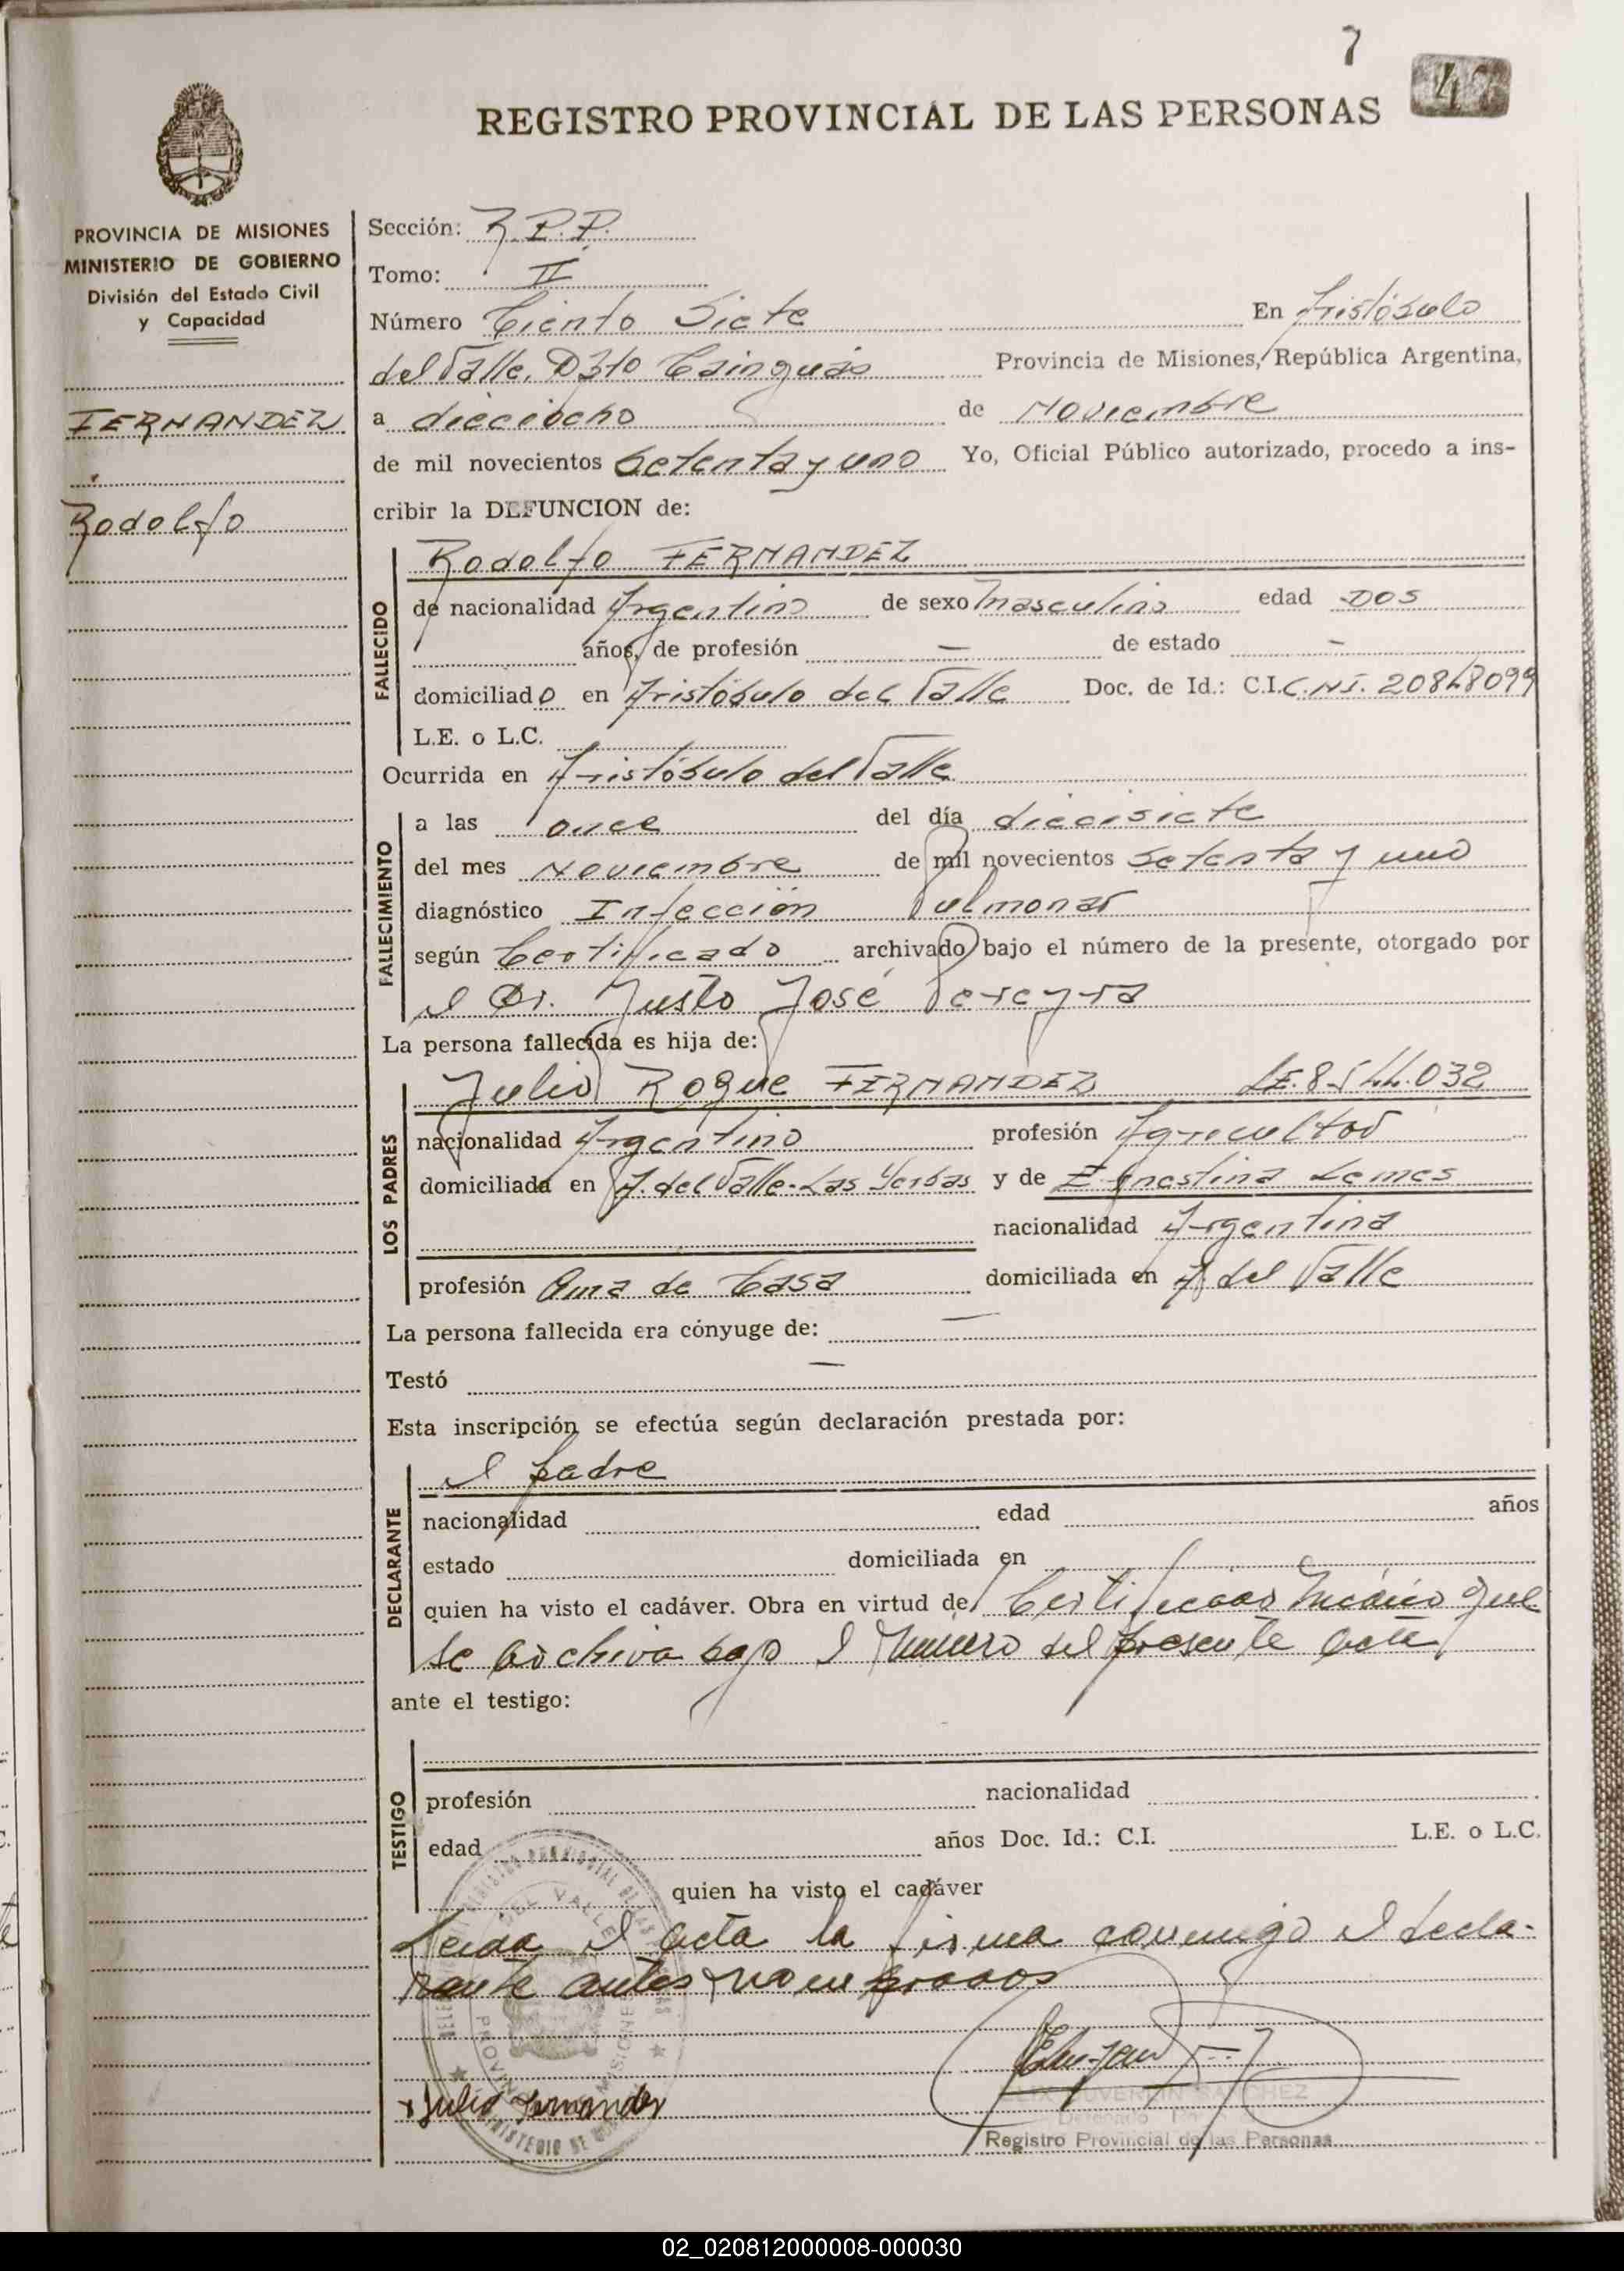 7
REGISTRO PROVINCIAL DE LAS PERSONAS
PROVINCIA DE MISIONES
MINISTERIO DE GOBIERNO
División del Estado Civil
y Capacidad
FERNANDEZ
Rodolfo
Sección: R.P.P.
Tomo: II
Número Ciento Siete En Aristóbulo
del Valle, Dpto Cainguás Provincia de Misiones, República Argentina,
a dieciocho de Noviembre
de mil novecientos Setenta y uno Yo, Oficial Público autorizado, procedo a ins-
cribir la DEFUNCION de:
FALLECIDO
Rodolfo FERNANDEZ
de nacionalidad Argentino de sexo Masculino edad DOS
años, de profesión — de estado —
domiciliado en Aristóbulo del Valle Doc. de Id.: C.I. C.N.I.
L.E. o L.C.
Ocurrida en Aristóbulo del Valle
FALLECIMIENTO
a las once del día diecisiete
del mes Noviembre de mil novecientos Setenta y uno
diagnóstico Infección Pulmonar
según Certificado archivado bajo el número de la presente, otorgado por
el Dr. Justo José Pereyra
La persona fallecida es hija de:
LOS PADRES
Julio Roque FERNANDEZ LE. 8.544.032
nacionalidad Argentino profesión Agricultor
domiciliada en A. del Valle-Las Yerbas y de Ernestina Lemes
nacionalidad Argentina
profesión Ama de Casa domiciliada en A. del Valle
La persona fallecida era cónyuge de: —
Testó —
Esta inscripción se efectúa según declaración prestada por:
DECLARANTE
el padre
nacionalidad edad años
estado domiciliada en
quien ha visto el cadáver. Obra en virtud de Certificado Médico que
se archiva bajo el Número del presente acta
ante el testigo:
TESTIGO
profesión nacionalidad
edad años Doc. Id.: C.I. L.E. o L.C.
quien ha visto el cadáver
Leida el acta la firma conmigo el decla-
rante antes nombrados
Julio Fernandez
SANCHEZ
Registro Provincial de las Personas
02_020812000008-000030